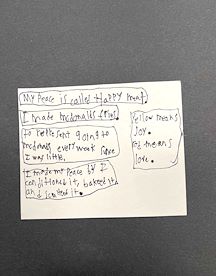 My Peace is called Happy meal.
I made mcdonalds fries.
to rePresent going to
mcdonalds every week since
I was little.
I made my Peace by
conditioned it, baked it
and glazed it.
Yellow means
Joy.
red means
love.